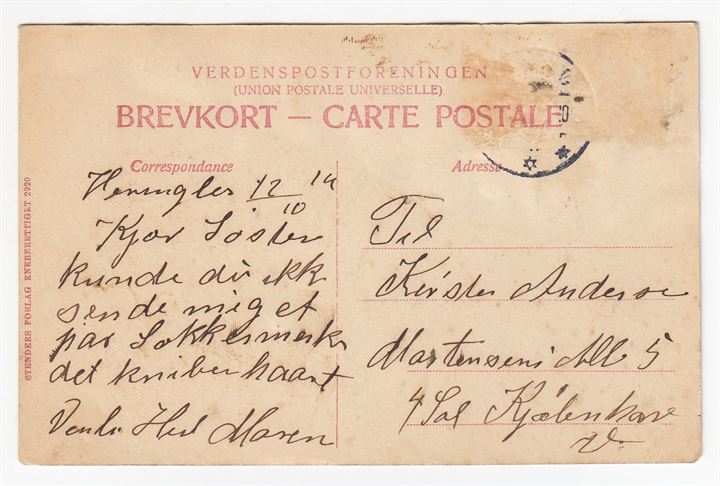 VERDENSPOSTFORENINGEN
(UNION POSTALE UNIVERSELLE)
BREVKORT — CARTE POSTALE
Correspondance
Adresse
STENDERS FORLAG ENEBERETTIGET 2920
12/10 14
Kjær Søster
kunde du ikk
sende mig et
par Sokkermærk
det kniber haart
Venli Hils Maren
Til
Kirsten Anderse
Martensens Alle 5
4 Sal Kjøbenhavn
V.